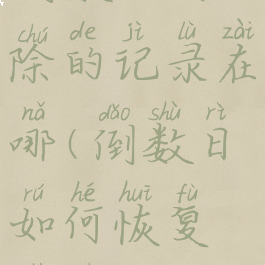 chú de jì lù zài
除的记录在
nǎ dǎo shù rì
哪(倒数日
rú hé huī fù
如何恢复